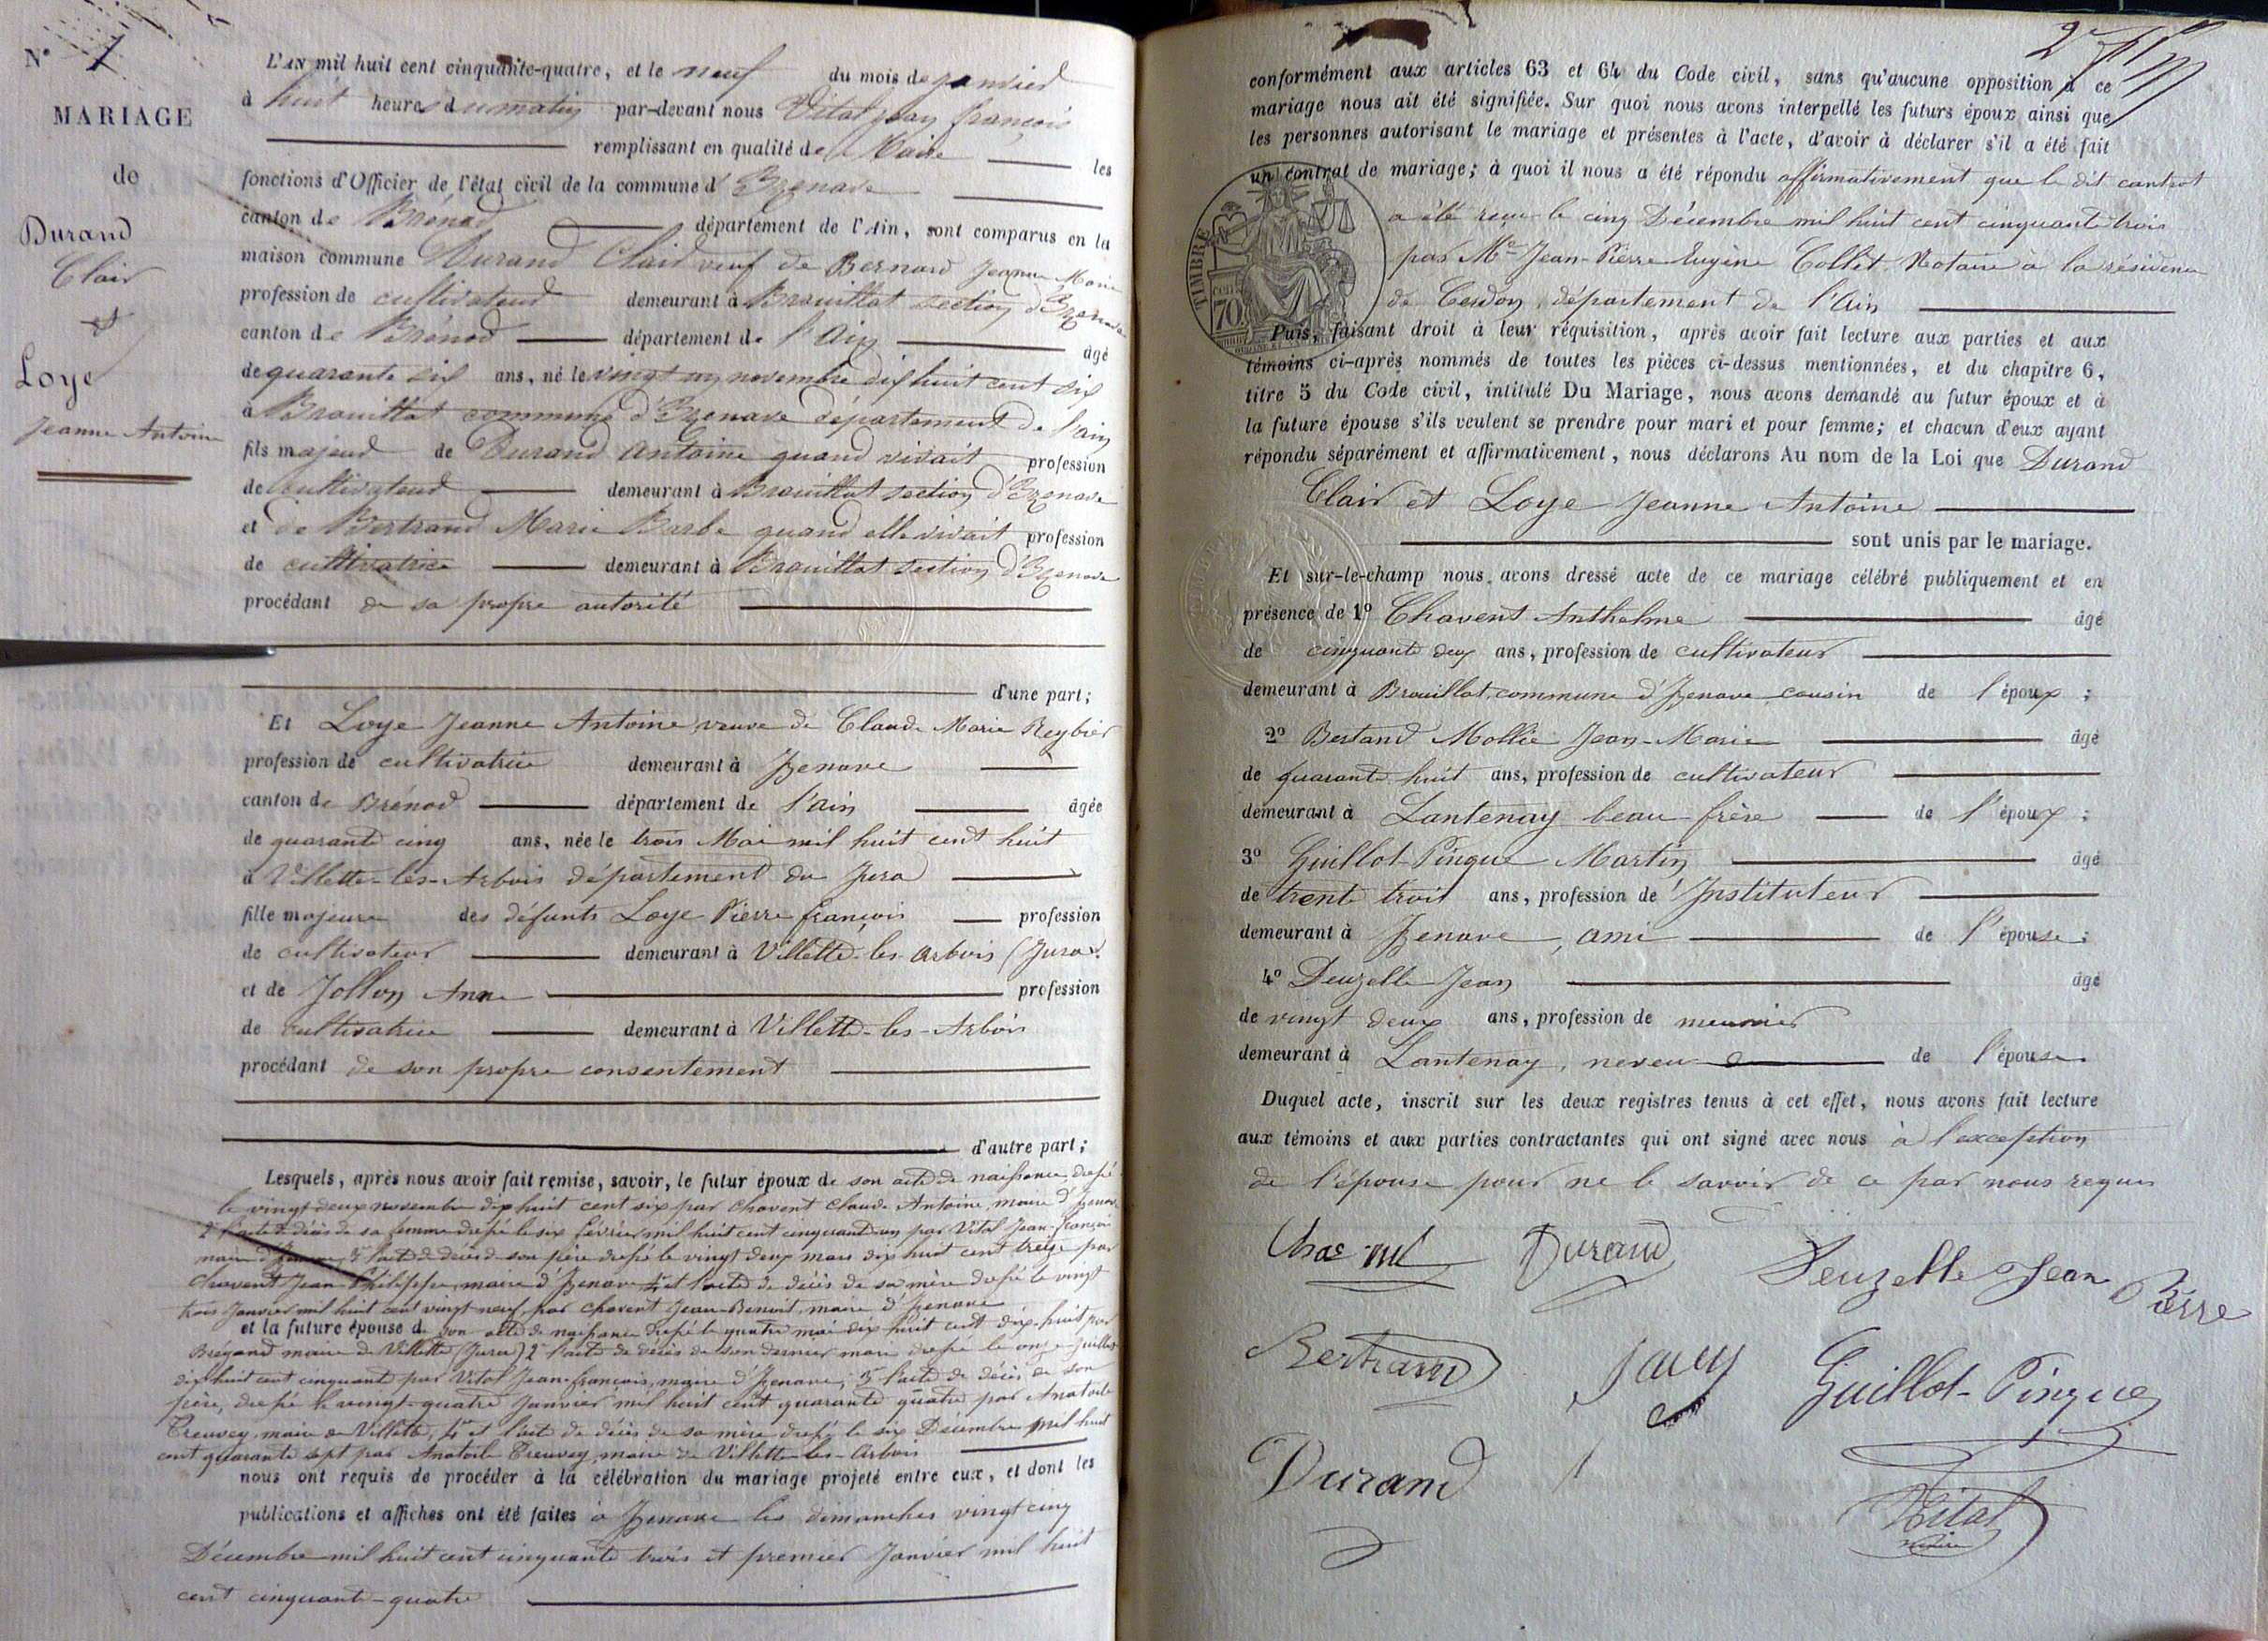 N° 1
MARIAGE
de
Durand
Clair
et
Loye
Jeanne Antoine
L'AN mil huit cent cinquante-quatre, et le neuf du mois de janvier
à huit heures du matin par-devant nous Vital jean françois
remplissant en qualité de Maire les
fonctions d'Officier de l'état civil de la commune d'Izenave
canton de Brénod département de l'Ain, sont comparus en la
maison commune Durand Clair veuf de Bernard Jeanne Marie
profession de cultivateur demeurant à Brouillat section d'Izenave
canton de Brénod département de l'Ain âgé
de quarante six ans, né le vingt un novembre dix huit cent six
à Brouillat commune d'Izenave département de l'ain
fils majeur de Durand Antoine quand vivait profession
de cultivateur demeurant à Brouillat section d'Izenave
et de Bertrand Marie Barbe quand elle vivait profession
de cultivatrice demeurant à Brouillat section d'Izenave
procédant de sa propre autorité
d'une part;
Et Loye Jeanne Antoine veuve de Claude Marie Reybier
profession de cultivatrice demeurant à Izenave
canton de Brénod département de l'ain âgée
de quarante cinq ans, née le trois Mai mil huit cent huit
à Villette-les-Arbois département du Jura
fille majeure des défunts Loye Pierre françois profession
de cultivateur demeurant à Villette-les-Arbois (Jura)
et de Jollon Anne profession
de cultivatrice demeurant à Villette-les-Arbois
procédant de son propre consentement
d'autre part;
Lesquels, après nous avoir fait remise, savoir, le futur époux de son acte de naissance dressé
le vingt deux novembre dix huit cent six par Chavent Claude Antoine, maire d'Izenave
2° l'acte de décès de sa femme dressé le six février mil huit cent cinquante un par Vital Jean-françois
maire d'Izenave, 3° l'acte de décès de son père dressé le vingt deux mars dix huit cent treize par
Chavent Jean-Philippe, maire d'Izenave 4° et l'acte de décès de sa mère dressé le vingt
trois Janvier mil huit cent vingt neuf, par Chavent Jean-Benoit, maire d'Izenave
et la future épouse de son acte de naissance dressé le quatre mai dix huit cent dix-huit par
Brégand maire de Villette (Jura) 2° l'acte de décès de son dernier mari dressé le onze Juillet
dix huit cent cinquante par Vital Jean-françois, maire d'Izenave, 3° l'acte de décès de son
père, dressé le vingt-quatre Janvier mil huit cent quarante quatre par Anatoile
Treuvey, maire de Villette, 4° et l'acte de décès de sa mère dressé le six Décembre mil huit
cent quarante sept par Anatoile Treuvey, maire de Villette-les-Arbois
nous ont requis de procéder à la célébration du mariage projeté entre eux, et dont les
publications et affiches ont été faites à Izenave les dimanches vingt cinq
Décembre mil huit cent cinquante trois et premier Janvier mil huit
cent cinquante-quatre
conformément aux articles 63 et 64 du Code civil, sans qu'aucune opposition à ce
mariage nous ait été signifiée. Sur quoi nous avons interpellé les futurs époux ainsi que
les personnes autorisant le mariage et présentes à l'acte, d'avoir à déclarer s'il a été fait
un contrat de mariage; à quoi il nous a été répondu affirmativement que le dit contrat
a été reçu le cinq Décembre mil huit cent cinquante trois
par Me Jean-Pierre Eugène Collet Notaire à la résidence
de Cerdon, département de l'Ain
TIMBRE
70
Puis, faisant droit à leur réquisition, après avoir fait lecture aux parties et aux
témoins ci-après nommés de toutes les pièces ci-dessus mentionnées, et du chapitre 6,
titre 5 du Code civil, intitulé Du Mariage, nous avons demandé au futur époux et à
la future épouse s'ils veulent se prendre pour mari et pour femme; et chacun d'eux ayant
répondu séparément et affirmativement, nous déclarons Au nom de la Loi que Durand
Clair et Loye Jeanne Antoine
sont unis par le mariage.
Et sur-le-champ nous avons dressé acte de ce mariage célébré publiquement et en
présence de 1° Chavent Anthelme âgé
de cinquante deux ans, profession de cultivateur
demeurant à Brouillat, commune d'Izenave cousin de l'époux;
2° Bertand Mollie Jean-Marie âgé
de quarante huit ans, profession de cultivateur
demeurant à Lantenay beau-frère de l'époux;
3° Guillot-Pingue Martin âgé
de trente trois ans, profession de Instituteur
demeurant à Izenave, ami de l'épouse;
4° Deuzelle Jean âgé
de vingt deux ans, profession de meunier
demeurant à Lantenay, neveu de l'épouse.
Duquel acte, inscrit sur les deux registres tenus à cet effet, nous avons fait lecture
aux témoins et aux parties contractantes qui ont signé avec nous à l'exception
de l'épouse pour ne le savoir de ce par nous requis
Durand
Deuzelle Jean Pierre
Bertrand
Guillot-Pingue
Durand
Vital
maire